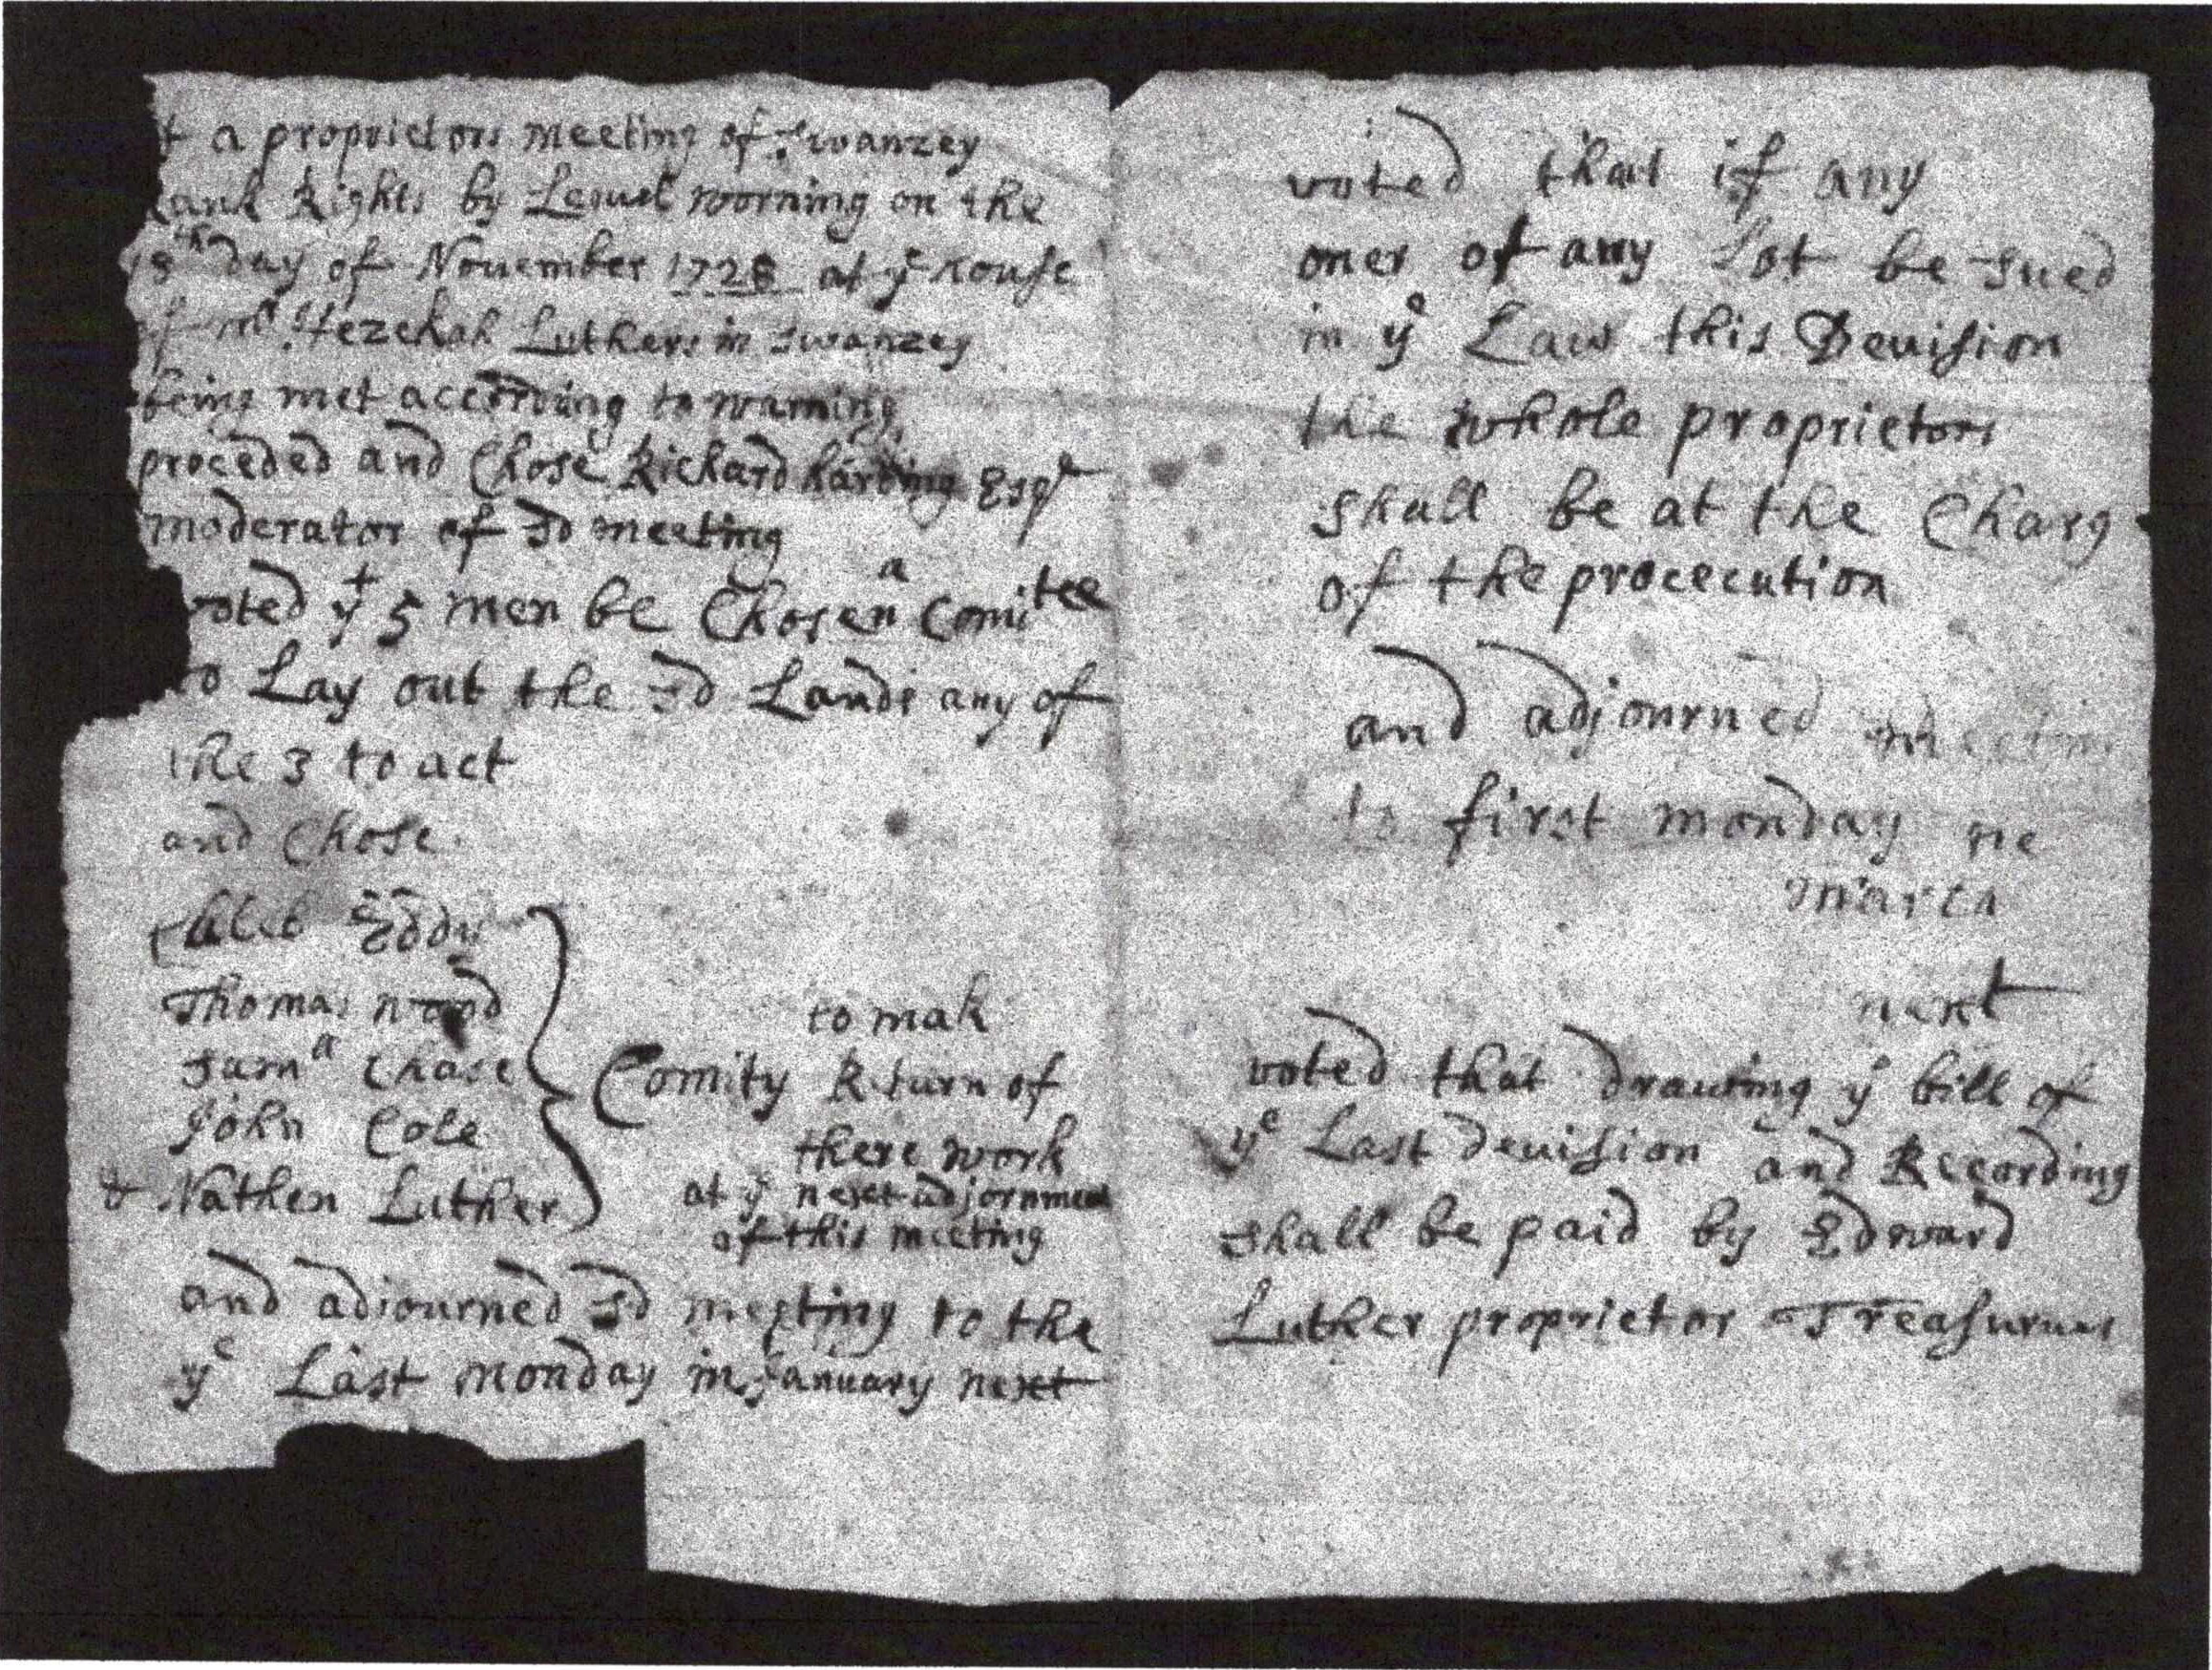 t a proprietors meeting of Swanzey
Rank Rights by Legual worning on the
18th day of Nouember 1728 at ye house
of mr Hezekah Luthers in Swanzey
being met according to warning
proceded and Chose Richard harding Esqr
moderator of sd meeting
voted yt 5 men be Chosen a Comitee
to Lay out the sd Lands any of
the 3 to act
and Chose
Caleb Eddy
Thomas wood
Sam Chase
John Cole
& Nathen Luther
Comity to mak
Return of
there work
at ye next adjornment
of this meeting
and adjourned sd meeting to the
ye Last monday in January next
voted that if any
oner of any Lot be sued
in ye Law this Deuision
the whole proprietors
shall be at the Charg
of the prosecution
and adjourned meetin
to first monday ne
march
next
voted that drawing ye bill of
ye Last deuision and Recording
shall be paid by Edward
Luther proprietor Treasurer